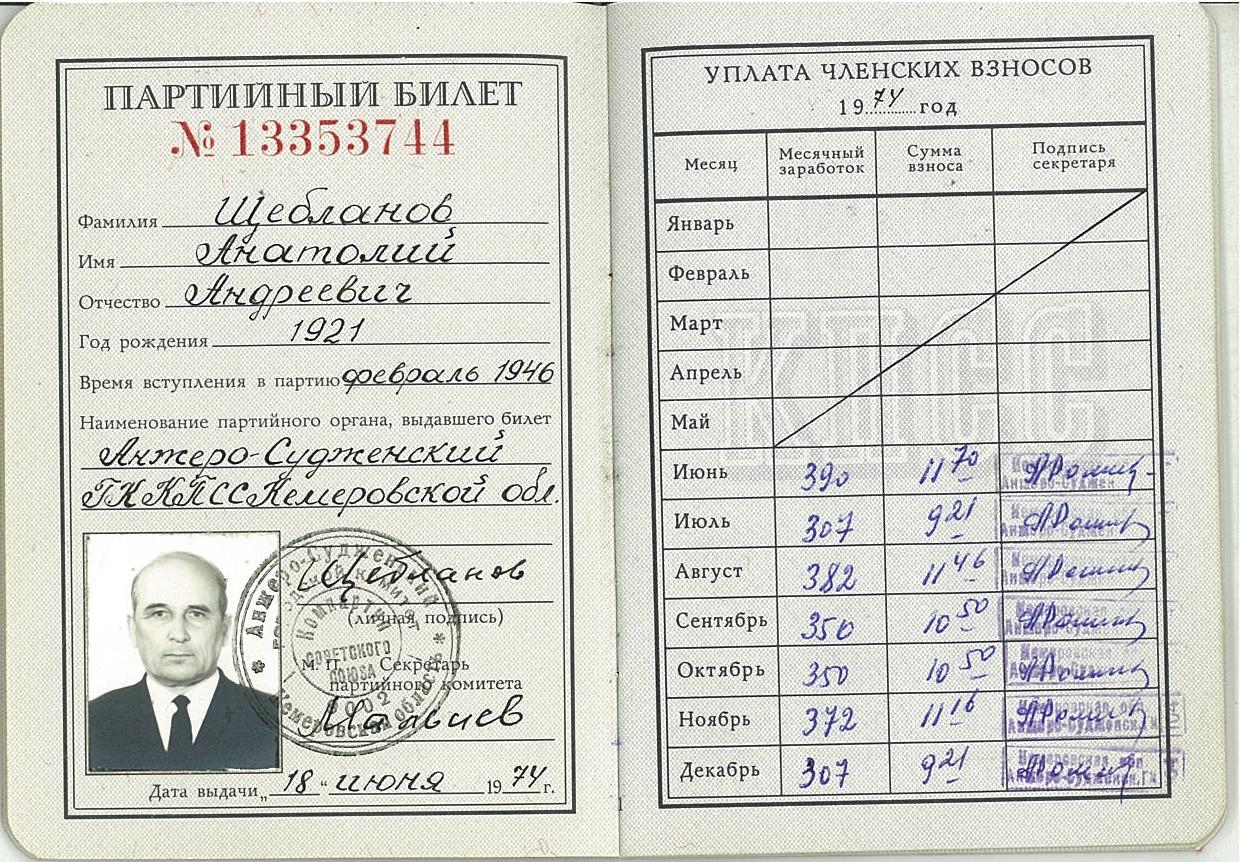 ПАРТИЙНЫЙ БИЛЕТ
№ 13353744
Фамилия Щебланов
Имя Анатолий
Отчество Андреевич
Год рождения 1921
Время вступления в партию февраль 1946
Наименование партийного органа, выдавшего билет
Анжеро-Судженский
ГК КПСС Кемеровской обл.
Щебланов
(личная подпись)
М. П. Секретарь
партийного комитета
Дата выдачи „18“ июня 1974 г.
Анжеро-Судженский городской комитет
Кемеровской области
Компартия
СОВЕТСКОГО
СОЮЗА
1002
УПЛАТА ЧЛЕНСКИХ ВЗНОСОВ
1974 год
Месяц Месячный заработок Сумма взноса Подпись секретаря
Январь
Февраль
Март
Апрель
Май
КПСС
Июнь 390 11 70
Июль 307 9 21
Август 382 11 46
Сентябрь 350 10 50
Октябрь 350 10 50
Ноябрь 372 11 16
Декабрь 307 9 21